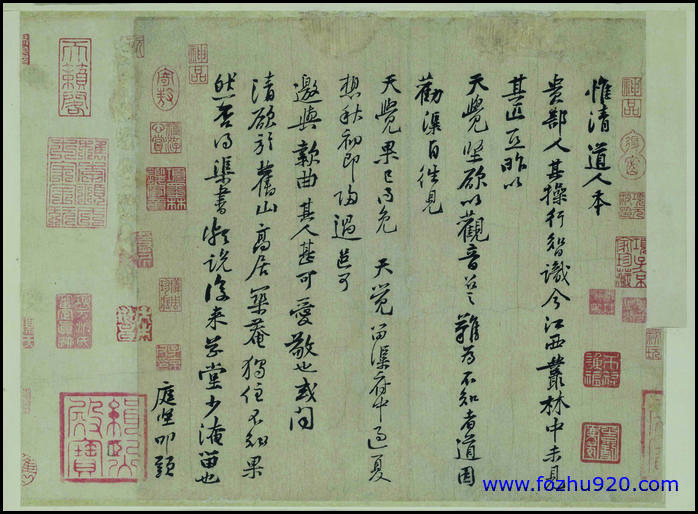 惟清道人本
貴部人其操行智識今江西叢林中未見
其匹亞昨以
天覺堅欲以觀音召之難為不知者道因
勸渠自往見
天覺果已得免 天覺留渠府中過夏
想秋初即歸過邑可
邀與款曲其人甚可愛敬也或問
清欲於舊山高居築菴獨住不知果
然否得渠書頻說後來草堂少淹留也
庭堅叩頭
神品
神品
天籟閣
緝熙殿寶
www.fozhu920.com